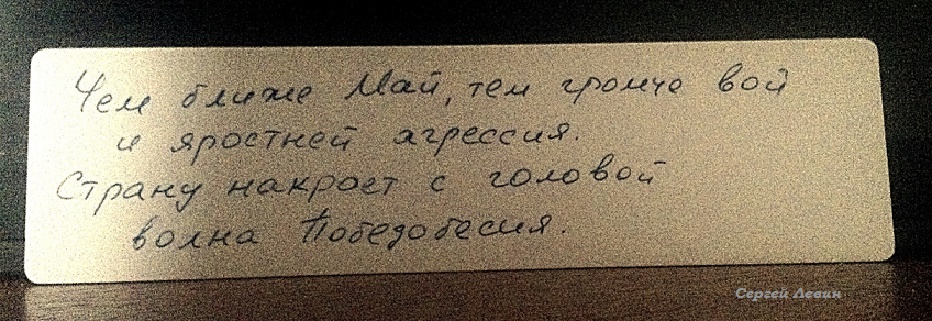 Чем ближе Май, тем громче вой
и яростней агрессия.
Страну накроет с головой
волна Победобесия.
Сергей Левин